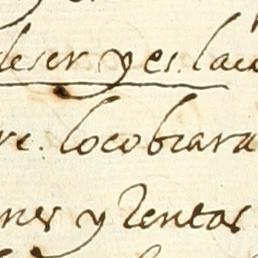 deser y es. la
re. lo cobrara
nes y Rentas